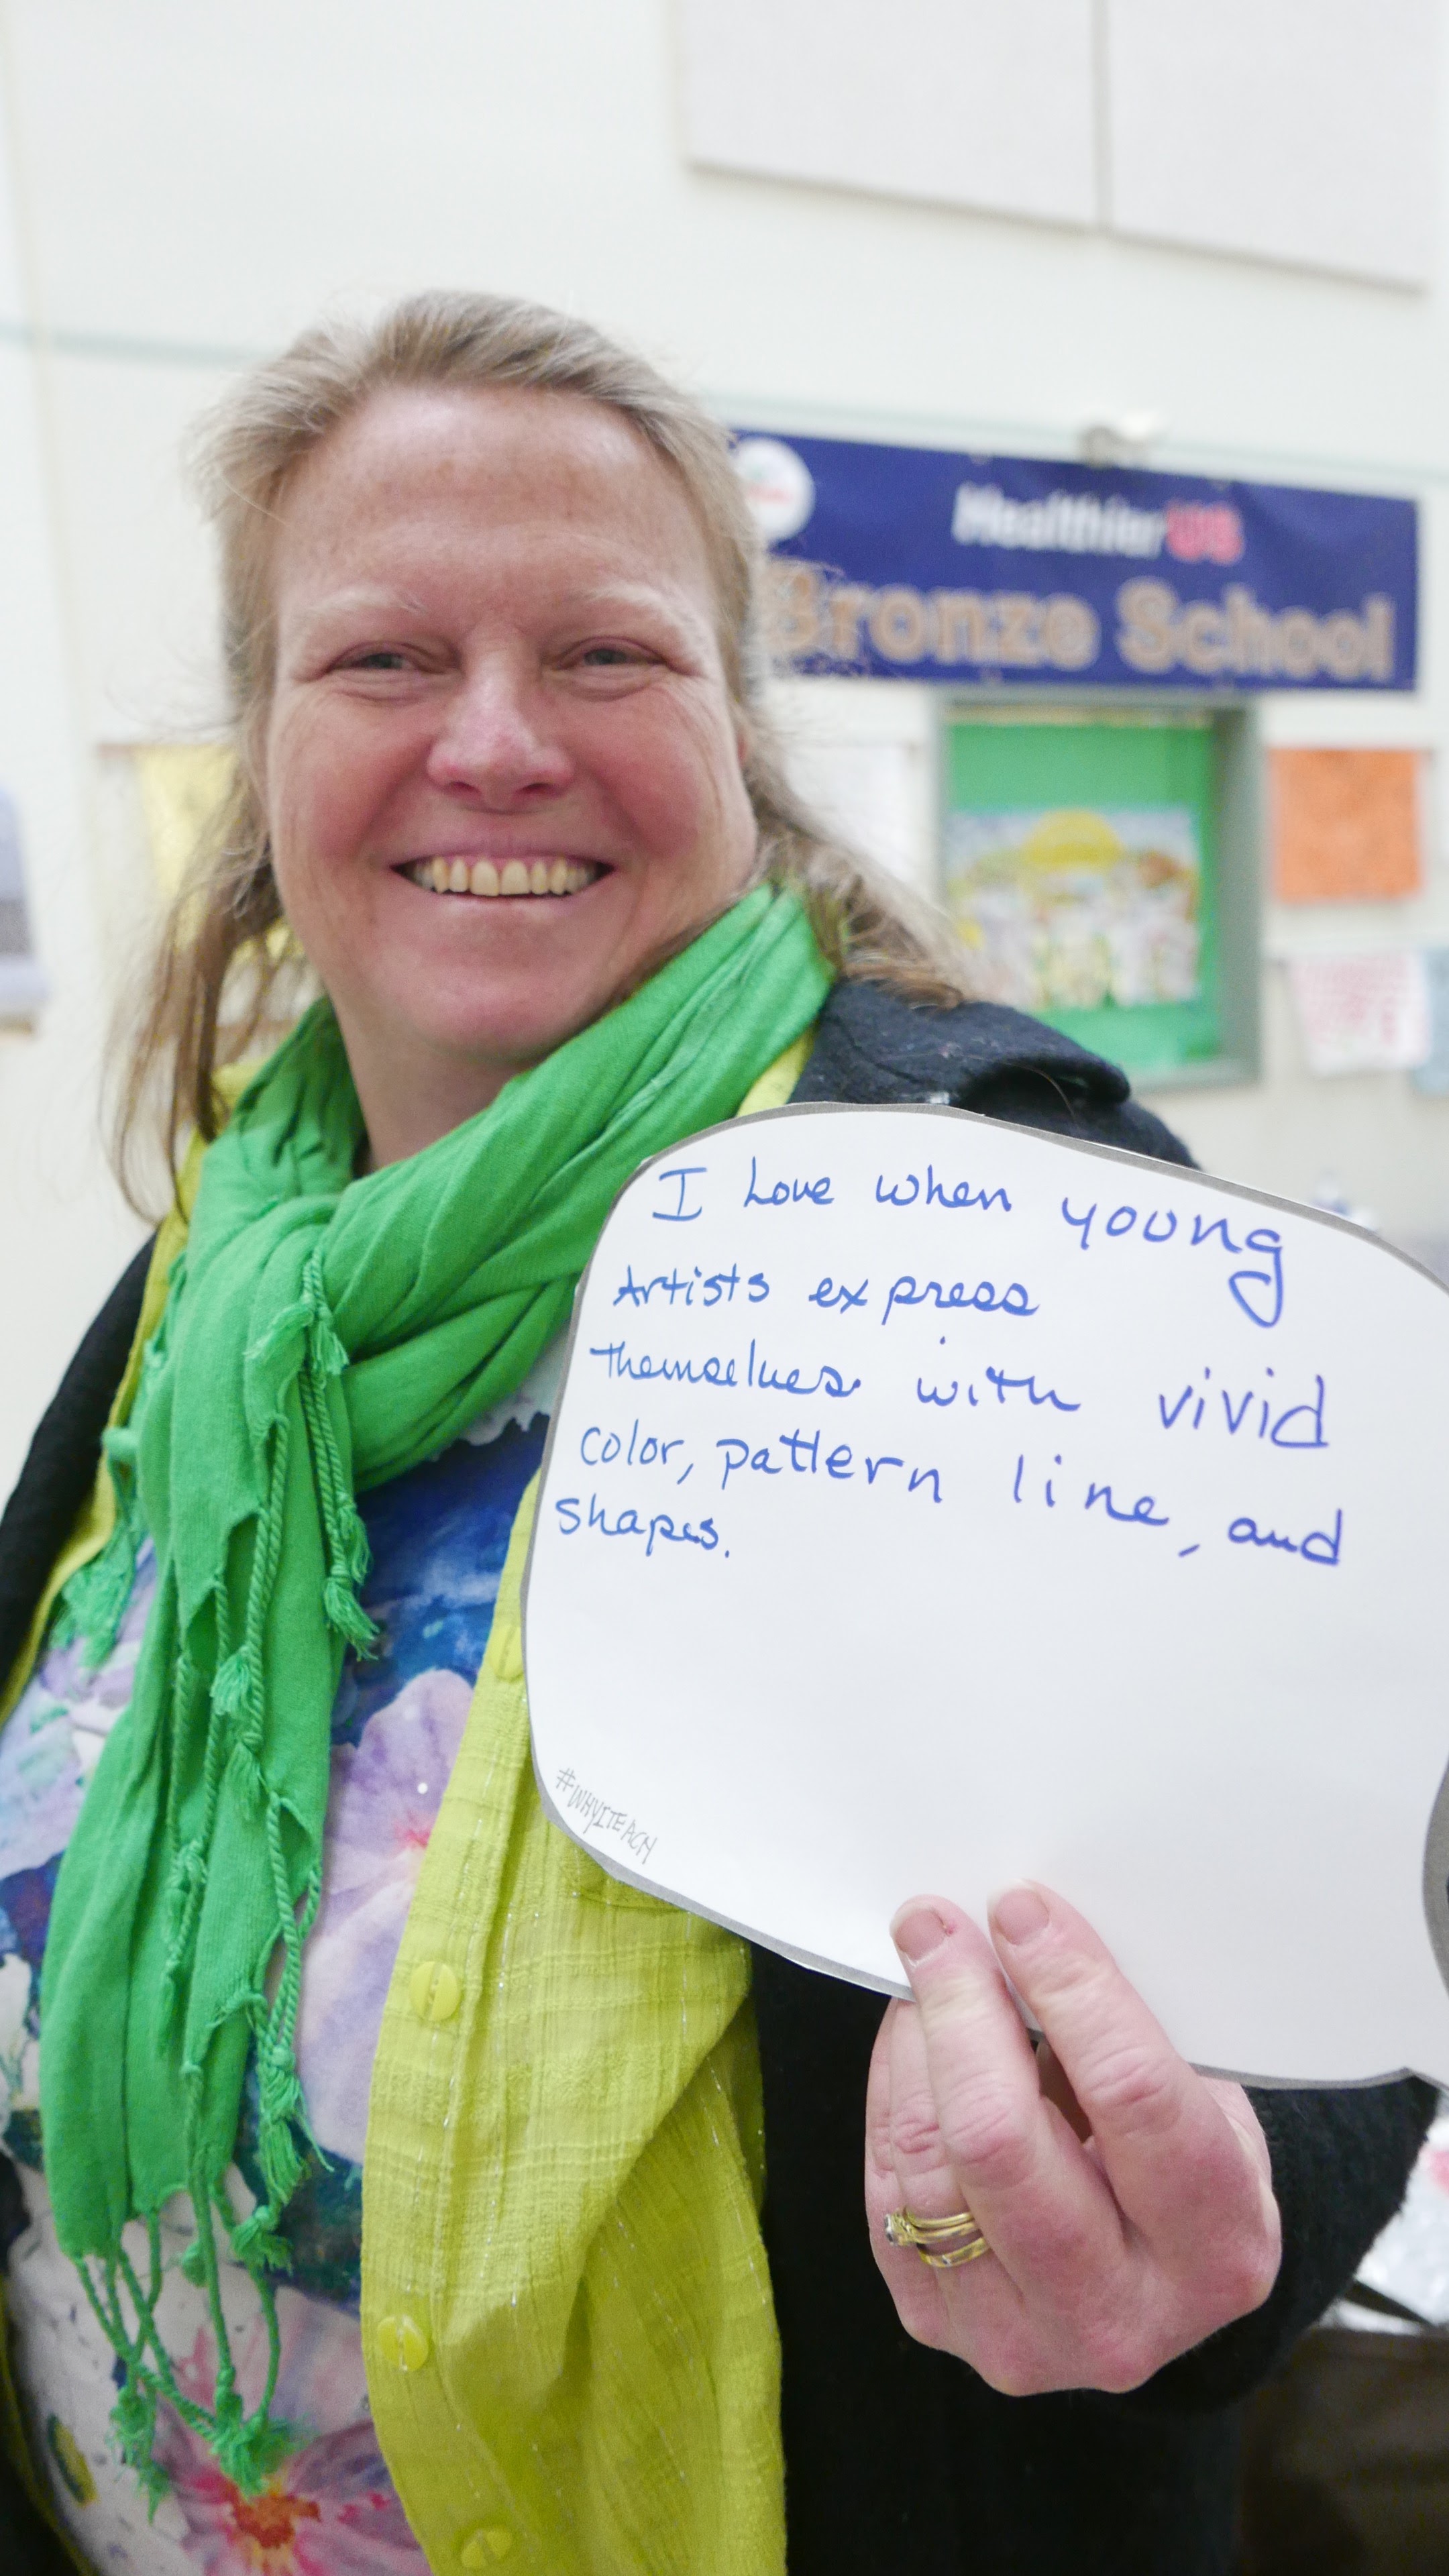 HealthierUS
Bronze School
I Love when young
Artists express
themselves with vivid
color, pattern line, and
shapes.
#WHYITEACH